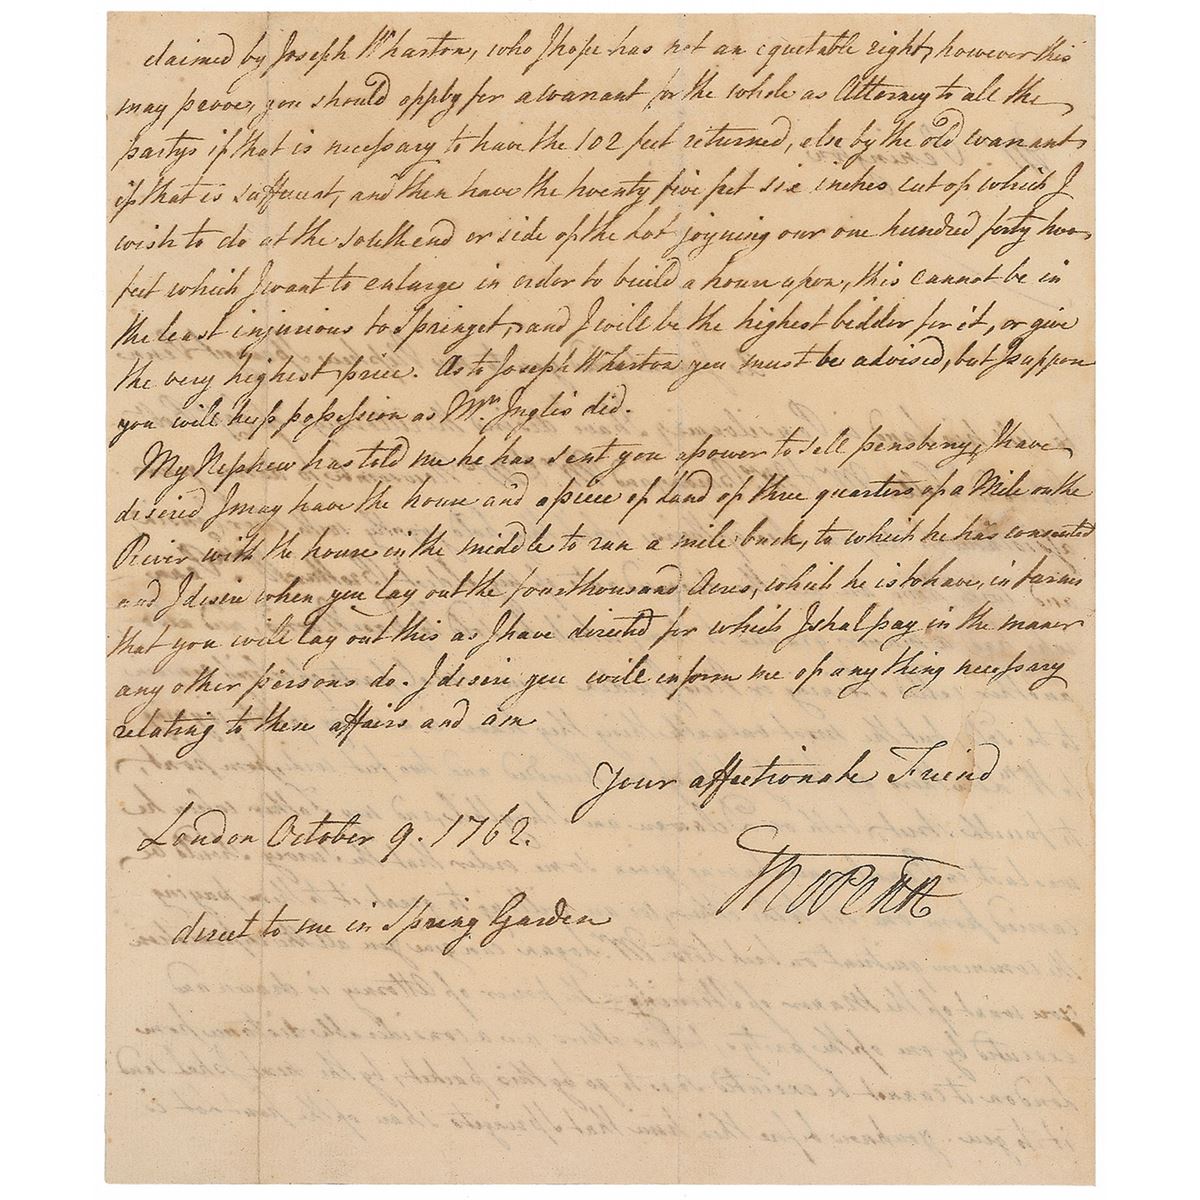 claimed by Joseph Wharton, who I hope has not an equitable right, however this
may prove, you should apply for a warrant for the whole as Attorney to all the
partys if that is necessary to have the 102 feet returned, else by the old warrant
if that is sufficient, and then have the twenty five feet six inches cut of which I
wish to do at the south end or side of the Lot joyning our one hundred forty two
feet which I want to enlarge in order to build a house upon, this cannot be in
the least injurious to Springet, and I will be the highest bidder for it, or give
the very highest price. As to Joseph Wharton you must be advised, but I suppose
you will keep possession as Mrs Inglis did.
My Nephew has told me he has sent you a power to sell pensberry, I have
desired I may have the house and a piece of Land of three quarters of a Mile on the
River with the house in the middle to run a mile back, to which he has consented
and I desire when you lay out the four thousand Acres, which he is to have, in farms
that you will lay out this as I have directed for which I shal pay in the maner
any other persons do. I desire you will inform me of any thing necessary
relating to these affairs and am
Your affectionate Friend
London October 9. 1762.
Tho Penn
direct to me in Spring Garden